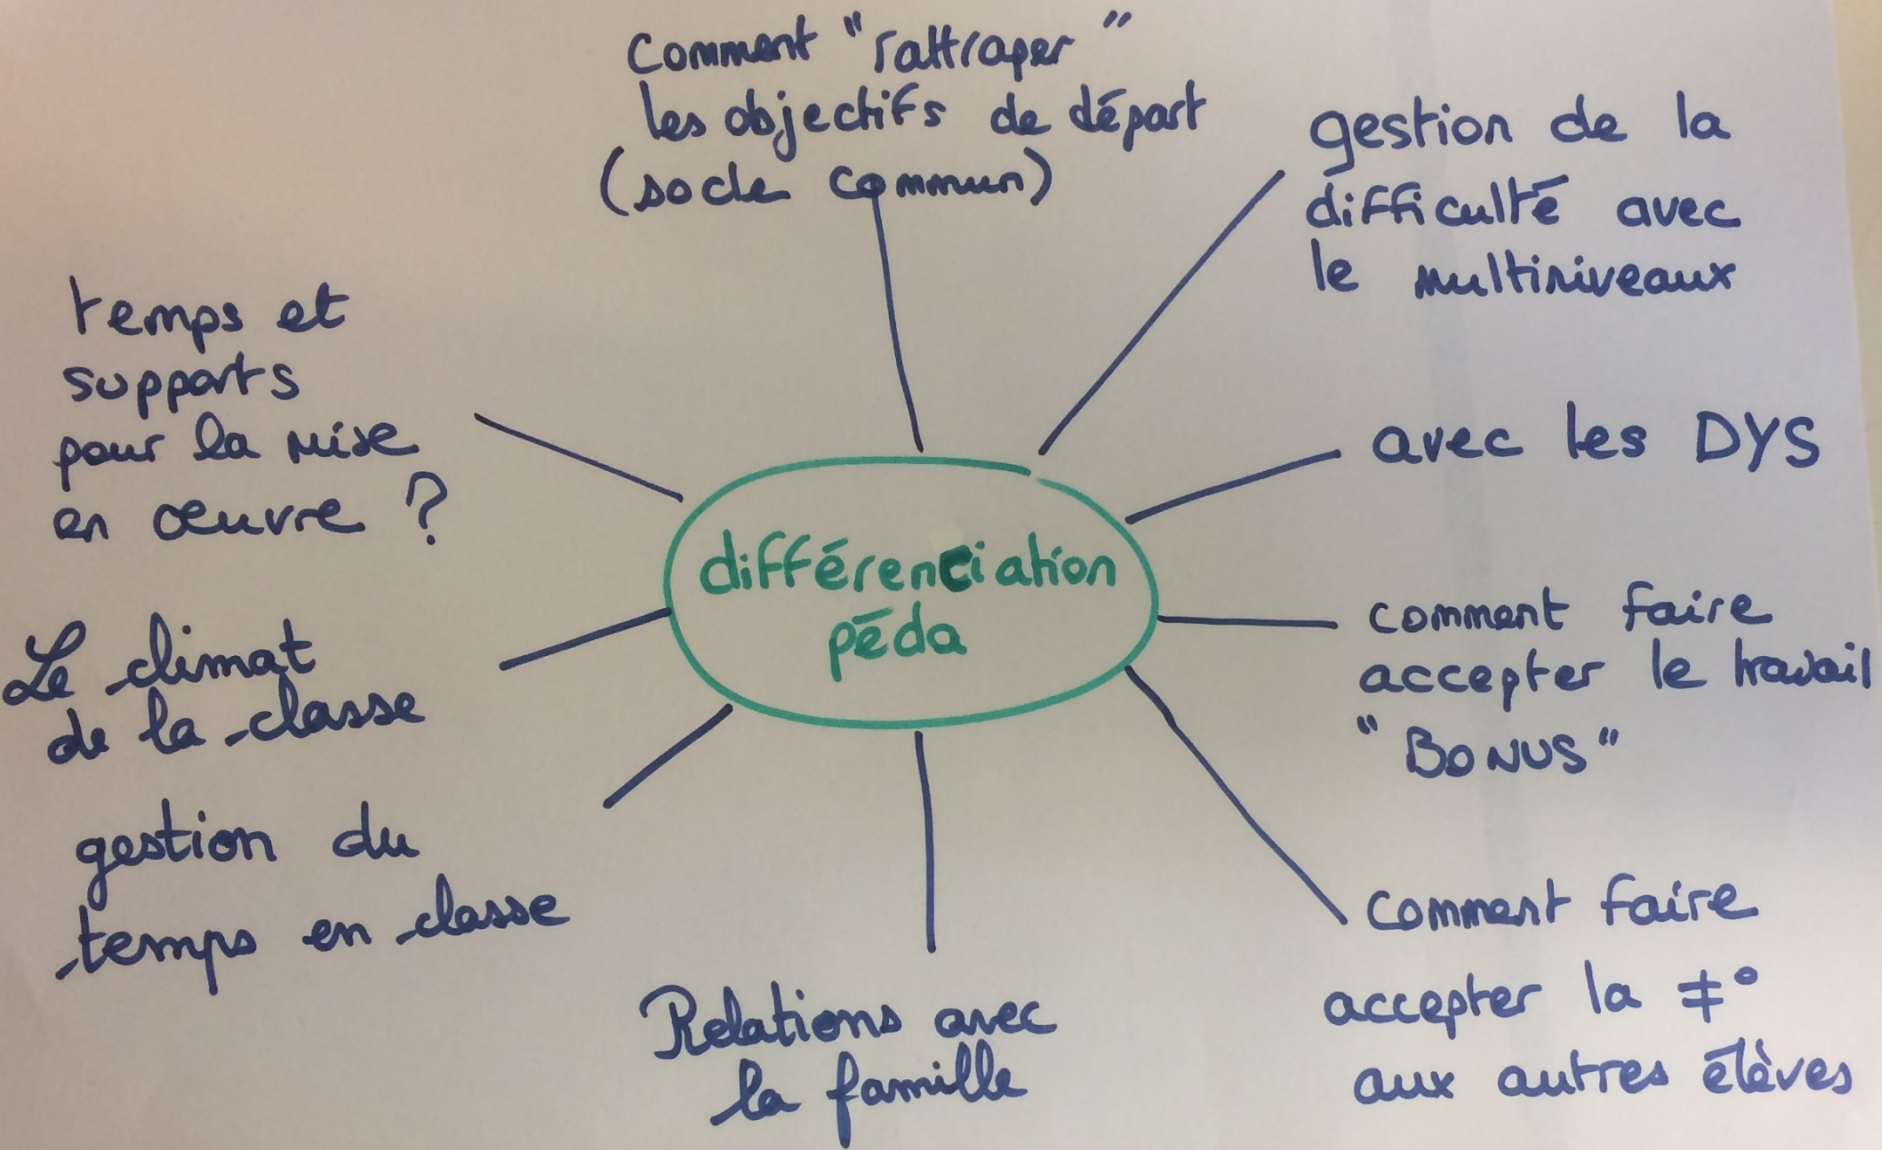 Comment "rattraper"
les objectifs de départ
(socle commun)
gestion de la
difficulté avec
le multiniveaux
avec les DYS
comment faire
accepter le travail
"BONUS"
comment faire
accepter la ≠°
aux autres élèves
Relations avec
la famille
gestion du
temps en classe
Le climat
de la classe
temps et
supports
pour la mise
en œuvre ?
différenciation
péda